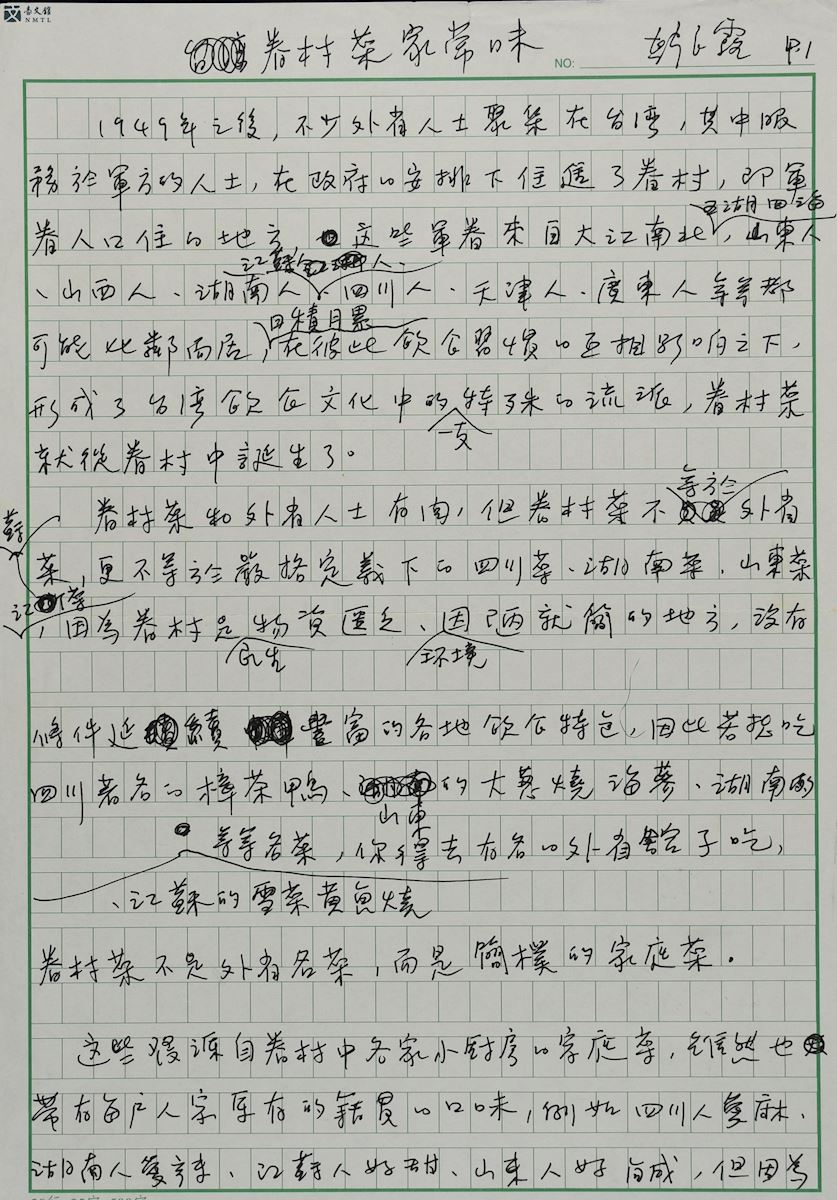 台文館
NMTL
眷村菜家常味
NO: 韓良露 P1
1949年之後，不少外省人士聚集在台灣，其中服
務於軍方的人士，在政府的安排下住進了眷村，即軍
眷人口住的地方 這些軍眷來自大江南北，五湖四海 山東人
、山西人、湖南人、江蘇人、四川人、天津人、廣東人等等都
可能比鄰而居，日積月累在彼此飲食習慣的互相影响之下，
形成了台湾飲食文化中的一支特殊的流派，眷村菜
就從眷村中誕生了。
眷村菜和外省人士有関，但眷村菜不等於外省
菜，更不等於嚴格定義下的四川菜、湖南菜、山東菜
、江蘇菜，因為眷村是民生物資匱乏、環境因陋就簡的地方，沒有
條件延續豐富的各地飲食特色，因此若想吃
四川著名的樟茶鴨、山東的大蔥燒海蔘、湖南的
、江蘇的雪菜黃魚燒
等等名菜，你得去有名的外省館子吃，
眷村菜不是外省名菜，而是簡樸的家庭菜。
這些源自眷村中各家小厨房的家庭菜，雖然也
帶有每戶人家原有的籍貫的口味，例如四川人愛麻、
湖南人愛辣、江蘇人好甜、山東人好鹹，但因為